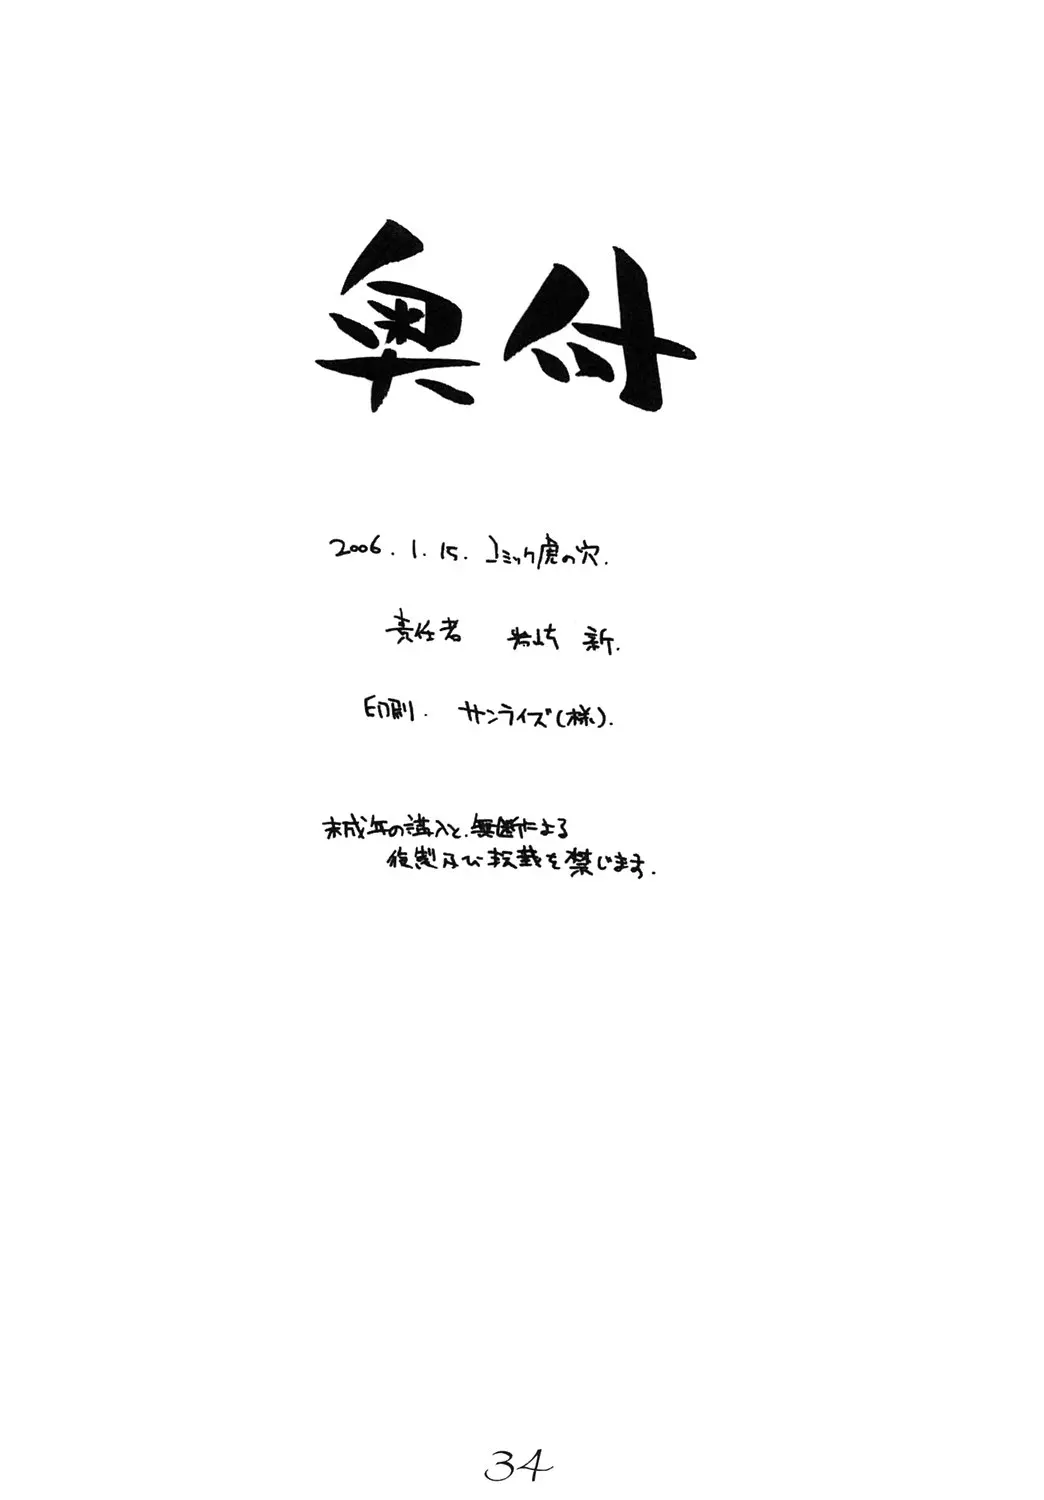 奥付
2006. 1. 15. コミック虎の穴.
責任者 岩崎 新.
印刷. サンライズ(様).
未成年の購入と、無断による
復製及び転載を禁じます.
34